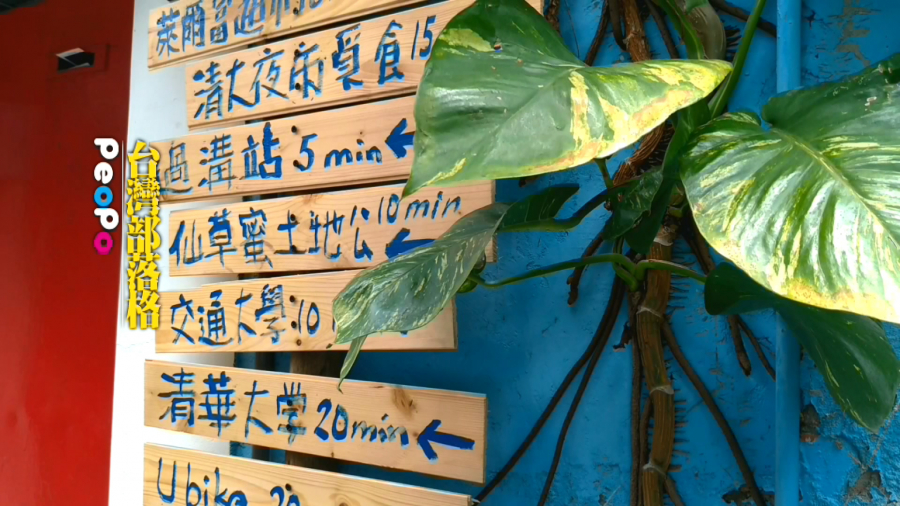 萊爾富
清大夜市覓食 15
過溝站 5 min ←
仙草蜜土地公 10 min ←
交通大學:10
清華大学 20 min ←
Ubike 20
PeoPo
台灣部落格